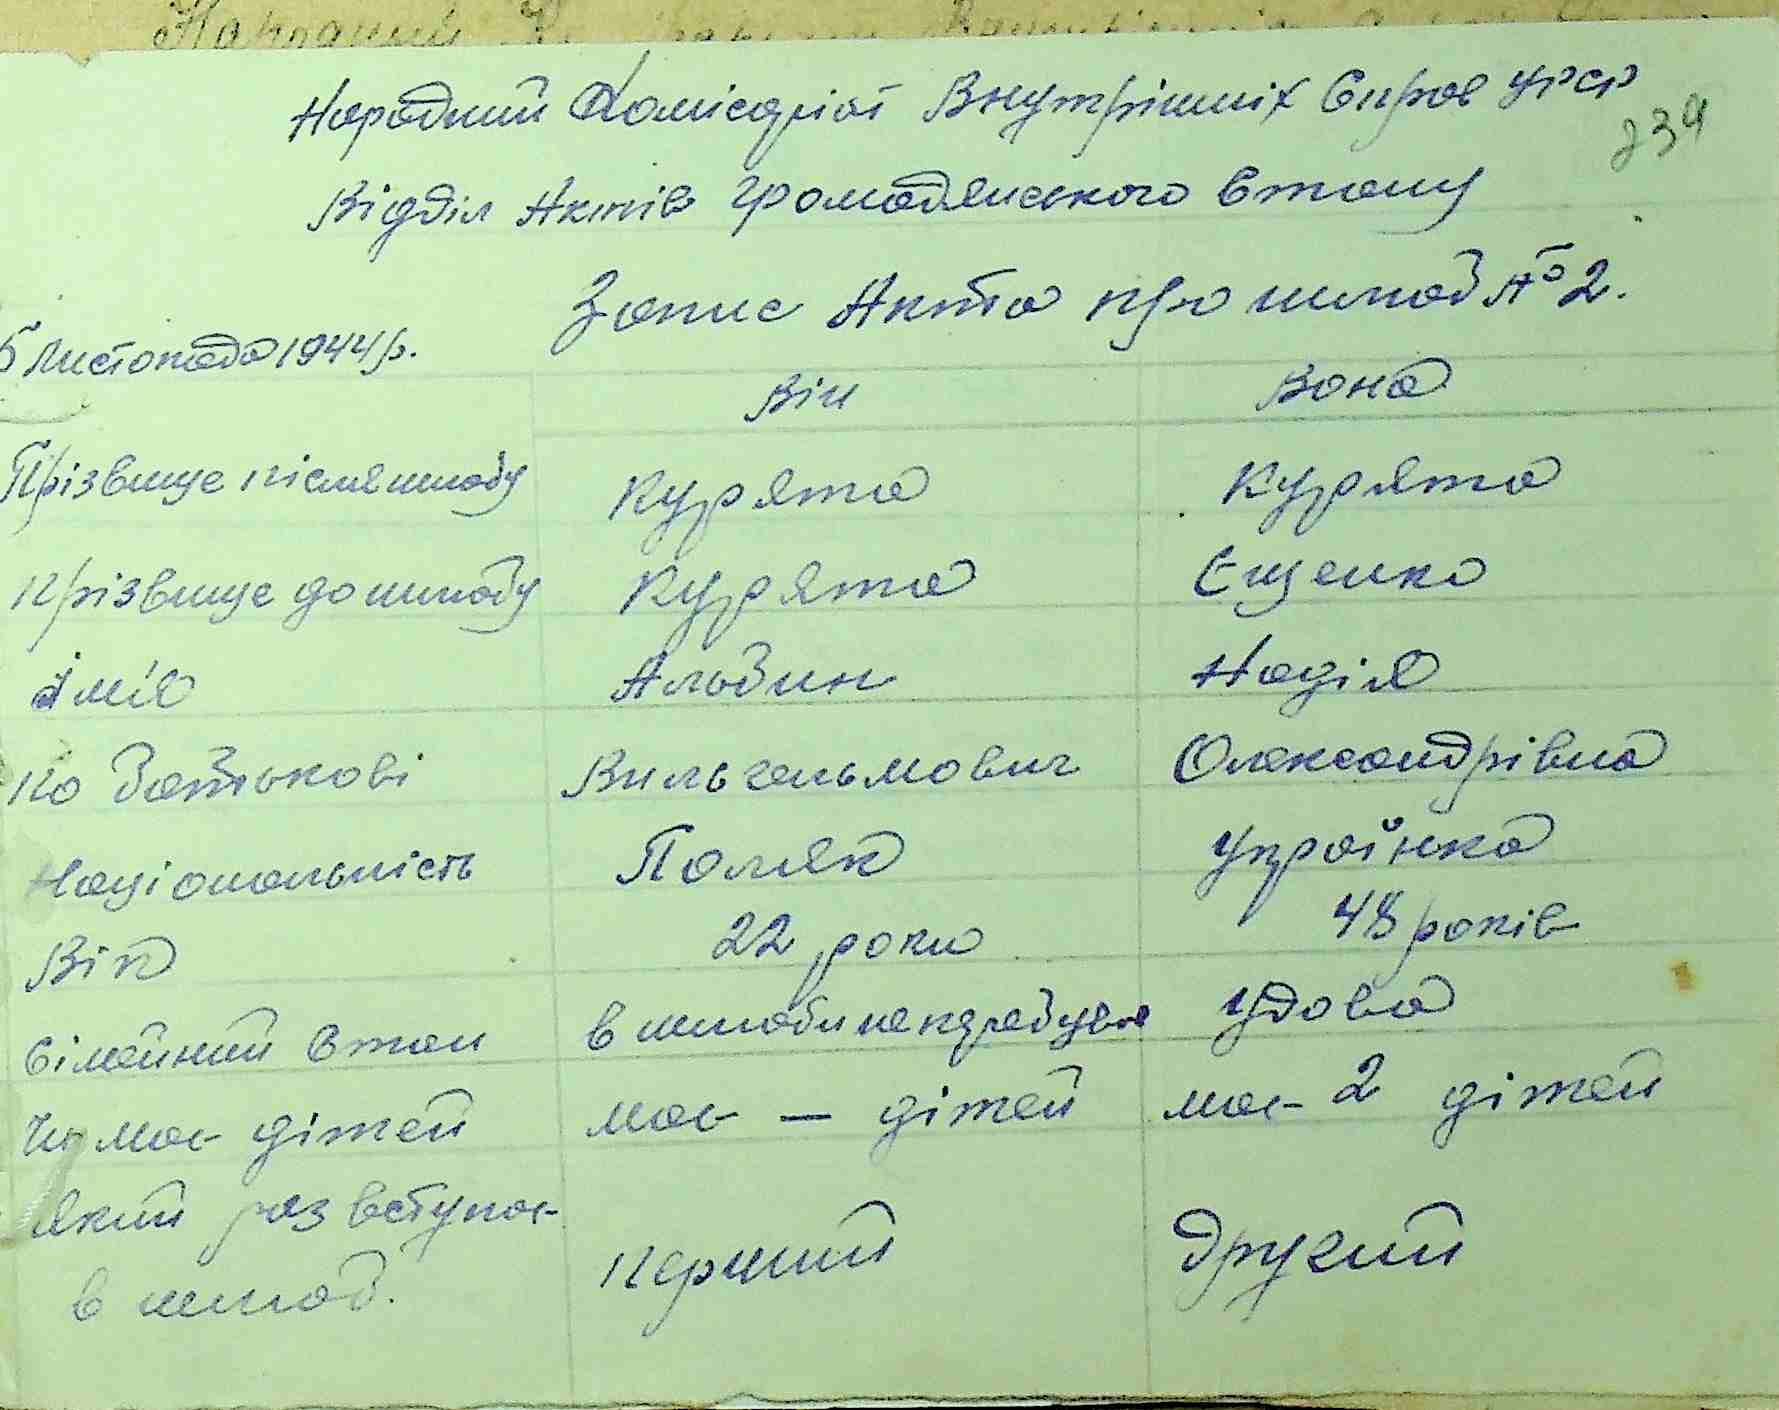 Народний
Народний Комісаріат Внутрішніх Справ УРСР
239
Відділ Актів Громадянського Стану
Запис Акта про шлюб № 2.
5 Листопада 1944 р.
Він Вона
Прізвище після шлюбу Курята Курята
Прізвище до шлюбу Курята Єщенко
Імʼя Альбин Надія
По Батькові Вильгельмович Олександрівна
Національність Поляк Українка
Вік 22 роки 48 років
Сімейний Стан в шлюби не перебував Удова
Чи має дітей має — дітей має 2 дітей
Який раз вступає
в шлюб. перший другий